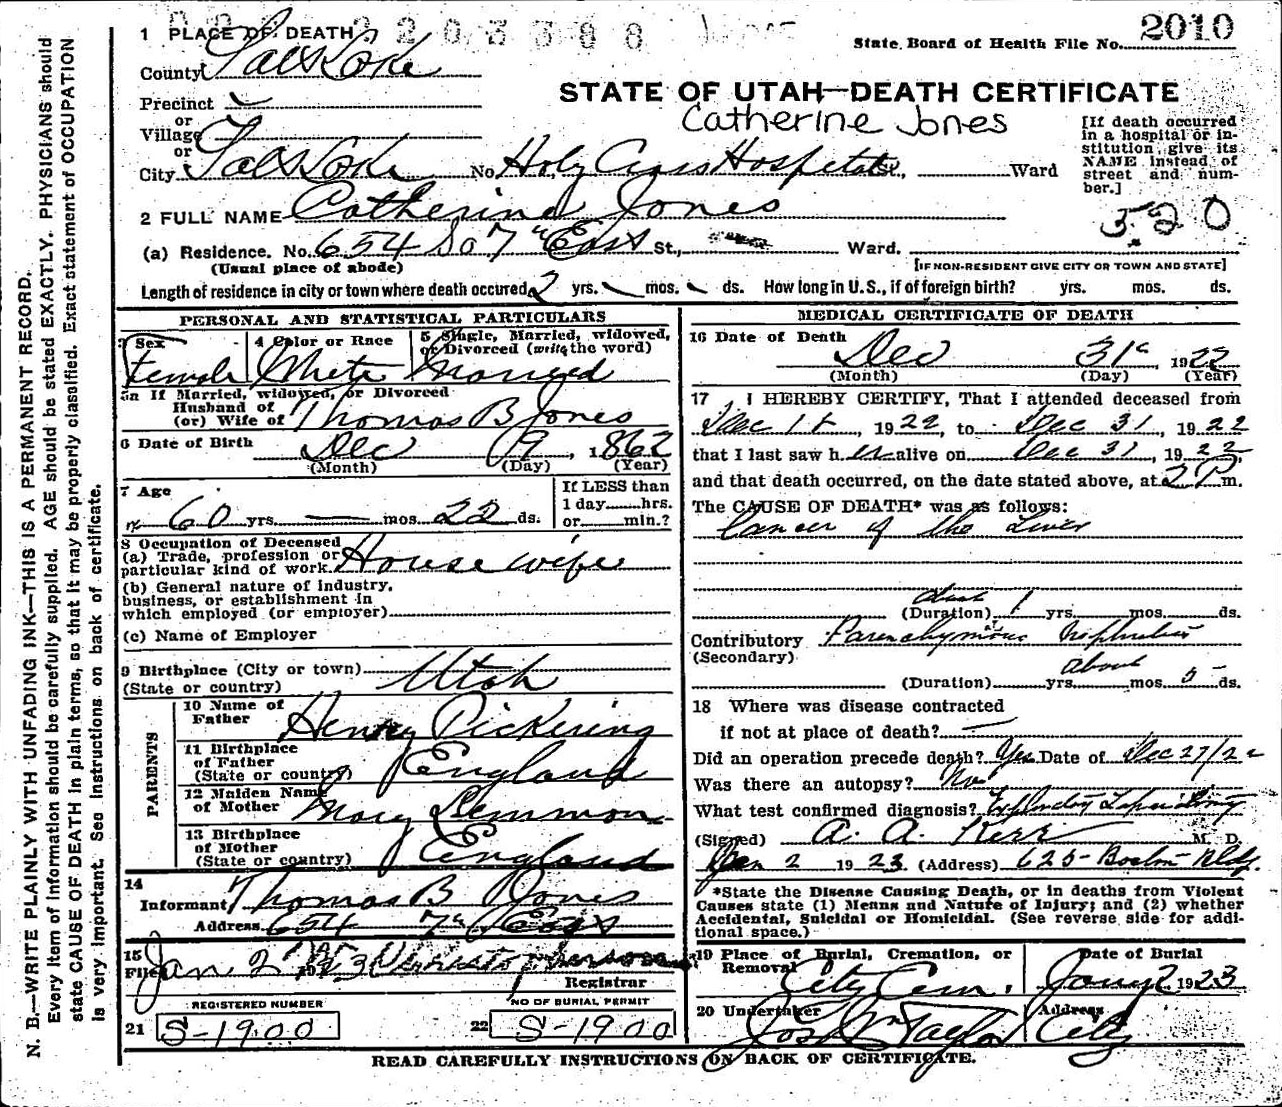 2010
1 PLACE OF DEATH
State Board of Health File No.
County Salt Lake
STATE OF UTAH—DEATH CERTIFICATE
Precinct
or
Village
or
Catherine Jones
[If death occurred in a hospital or institution, give its NAME instead of street and number.]
City Salt Lake No. Holy Cross Hospital St., Ward
2 FULL NAME Catherine Jones
520
(a) Residence. No. 654 So 7" East St., Ward.
(Usual place of abode)
[IF NON-RESIDENT GIVE CITY OR TOWN AND STATE]
Length of residence in city or town where death occured 2 yrs. mos. ds. How long in U.S., if of foreign birth? yrs. mos. ds.
PERSONAL AND STATISTICAL PARTICULARS
3 Sex
Female
4 Color or Race
White
5 Single, Married, widowed, or Divorced (write the word)
Married
5a If Married, widowed, or Divorced
Husband of
(or) Wife of Thomas B Jones
6 Date of Birth Dec 9, 1862
(Month) (Day) (Year)
7 Age
60 yrs. — mos. 22 ds.
If LESS than
1 day hrs.
or min.?
8 Occupation of Deceased
(a) Trade, profession or
particular kind of work. House wife
(b) General nature of industry,
business, or establishment in
which employed (or employer)
(c) Name of Employer
9 Birthplace (City or town) Utah
(State or country)
PARENTS
10 Name of
Father Henry Pickering
11 Birthplace
of Father
(State or country) England
12 Maiden Name
of Mother Mary Lemmon
13 Birthplace
of Mother
(State or country) England
14
Informant Thomas B Jones
Address 654 7" East
15
Filed Jan 2
Registrar
REGISTERED NUMBER
NO OF BURIAL PERMIT
21 S-1900
22 S-1900
MEDICAL CERTIFICATE OF DEATH
16 Date of Death
Dec 31, 1922
(Month) (Day) (Year)
17 I HEREBY CERTIFY, That I attended deceased from
Dec 1, 1922, to Dec 31, 1922
that I last saw her alive on Dec 31, 1922,
and that death occurred, on the date stated above, at 2 P m.
The CAUSE OF DEATH* was as follows:
Cancer of the Liver
(Duration) 1 yrs. mos. ds.
Contributory Parenchymous Nephritis
(Secondary)
about
(Duration) yrs. mos. 5 ds.
18 Where was disease contracted
if not at place of death? —
Did an operation precede death? Yes Date of Dec 27/22
Was there an autopsy? No
What test confirmed diagnosis? Exploratory Laparotomy
(Signed) A. A. Kerr M. D.
Jan 2 1923 (Address) 625 Boston Bldg.
*State the Disease Causing Death, or in deaths from Violent
Causes state (1) Means and Nature of Injury; and (2) whether
Accidental, Suicidal or Homicidal. (See reverse side for addi-
tional space.)
19 Place of Burial, Cremation, or
Removal City Cem.
Date of Burial
Jany 2 1923
20 Undertaker
Jos Wm Taylor
Address
City
READ CAREFULLY INSTRUCTIONS ON BACK OF CERTIFICATE.
N. B.—WRITE PLAINLY WITH UNFADING INK—THIS IS A PERMANENT RECORD.
Every item of information should be carefully supplied. AGE should be stated EXACTLY. PHYSICIANS should
state CAUSE OF DEATH in plain terms, so that it may be properly classified. Exact statement of OCCUPATION
is very important. See instructions on back of certificate.